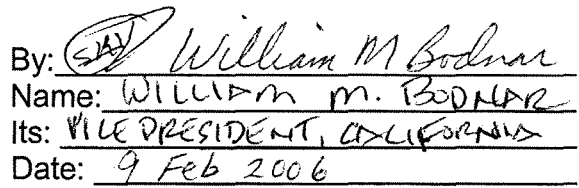 By: William M Bodnar
Name: WILLIAM M. BODNAR
Its: VICE PRESIDENT, CALIFORNIA
Date: 9 Feb 2006